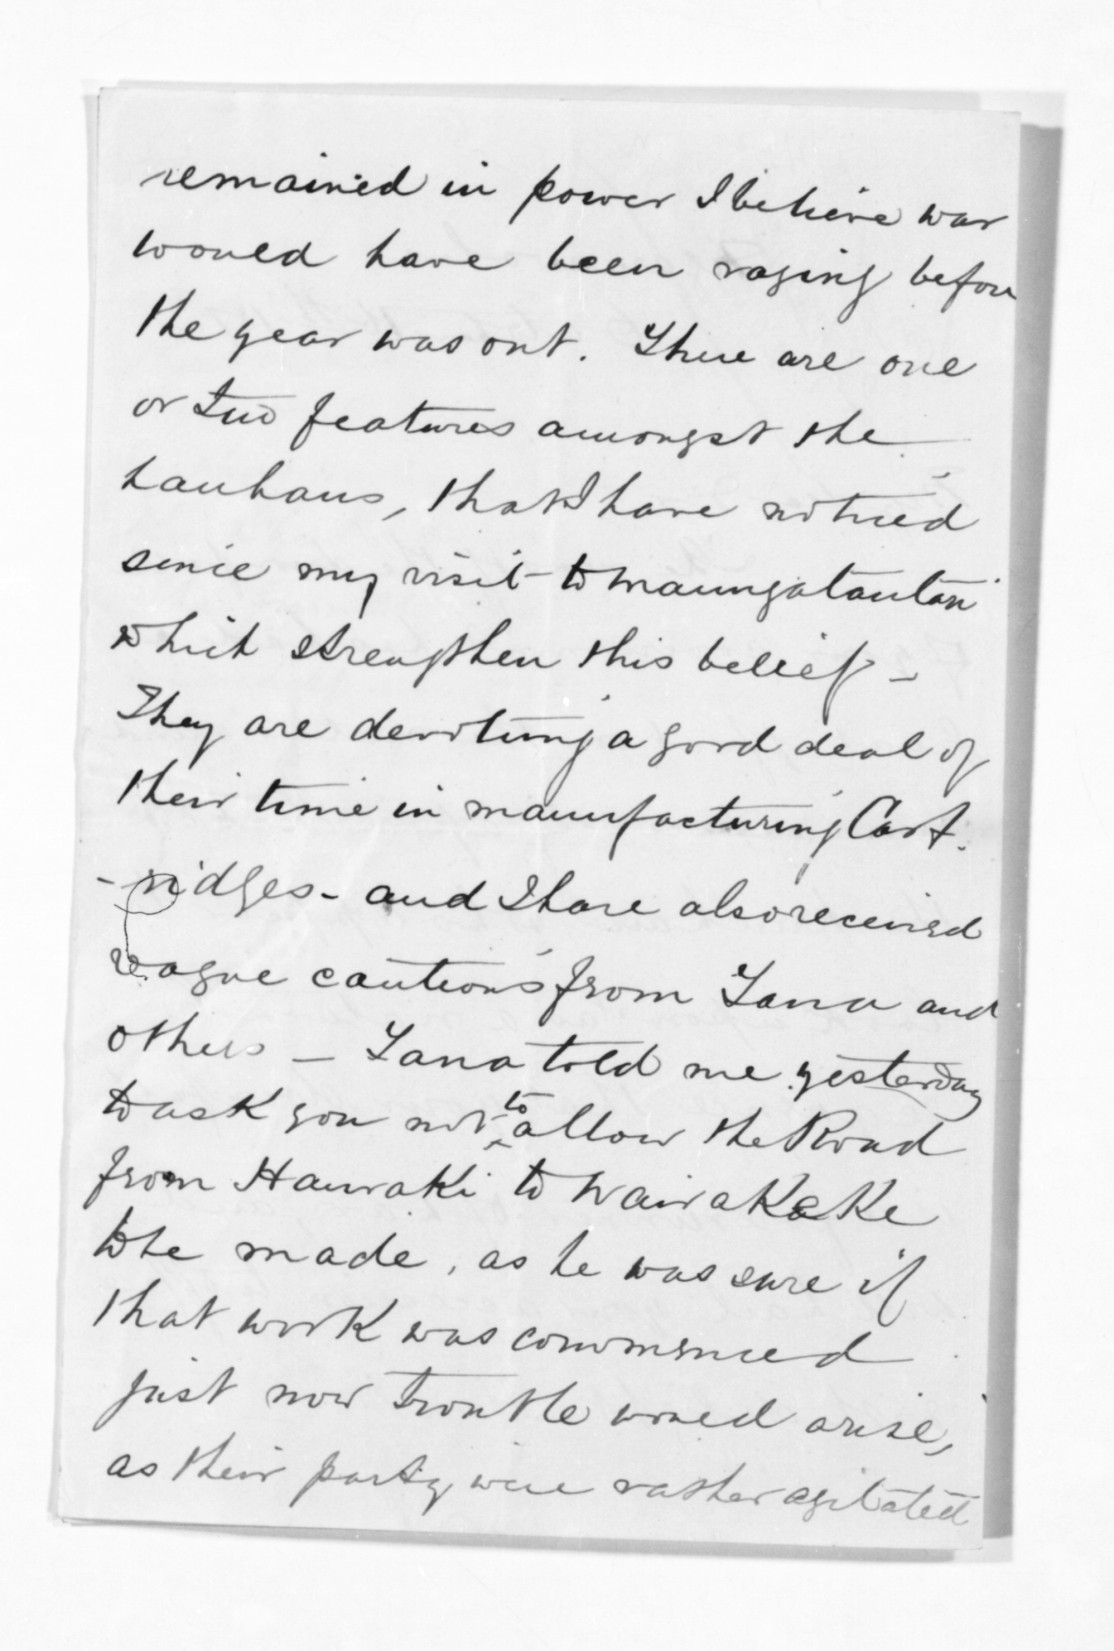 remained in power I believe war
would have been raging before
the year was out. There are one
or two features amongst the
hauhaus, that I have noticed
since my visit to Maungatautari
which strengthen this belief -
They are devoting a good deal of
their time in manufacturing Cart-
-ridges - and I have also received
vague cautions from Tana and
others - Tana told me yesterday
to ask you not to allow the Road
from Hauraki to Wairakeke
to be made, as he was sure if
that work was commenced
just now trouble would arise,
as their party were rather agitated